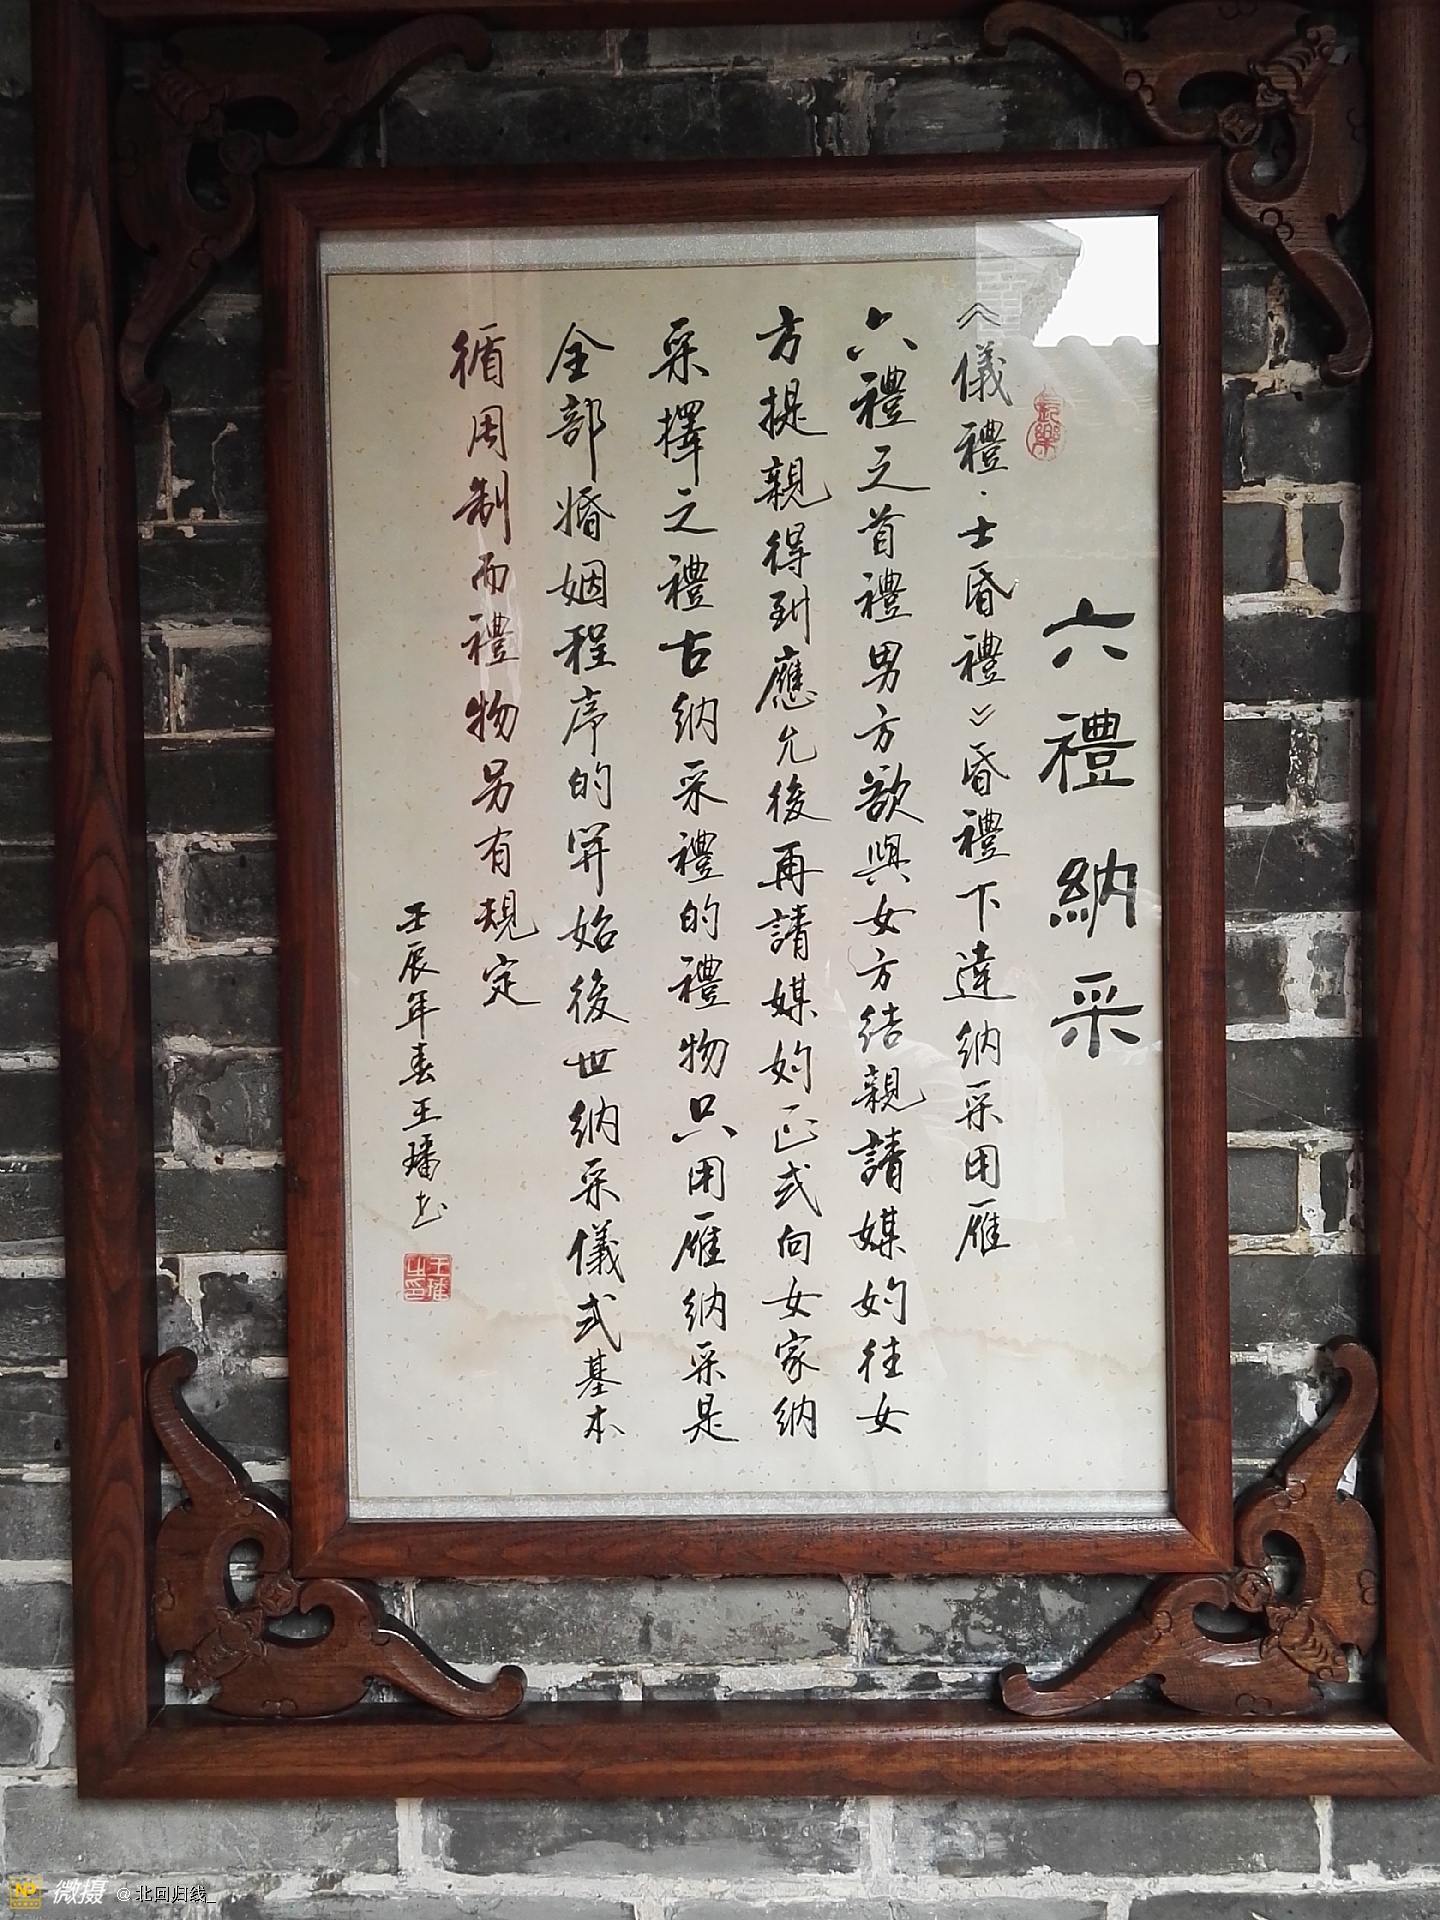 六禮納采
《儀禮·士昏禮》昏禮下達納采用雁
六禮之首禮男方欲與女方結親請媒妁往女
方提親得到應允後再請媒妁正式向女家納
采擇之禮古納采禮的禮物只用雁納采是
全部婚姻程序的開始後世納采儀式基本
循周制而禮物另有規定
壬辰年春王璠书
王璠之印
NP 微摄 @北回归线_